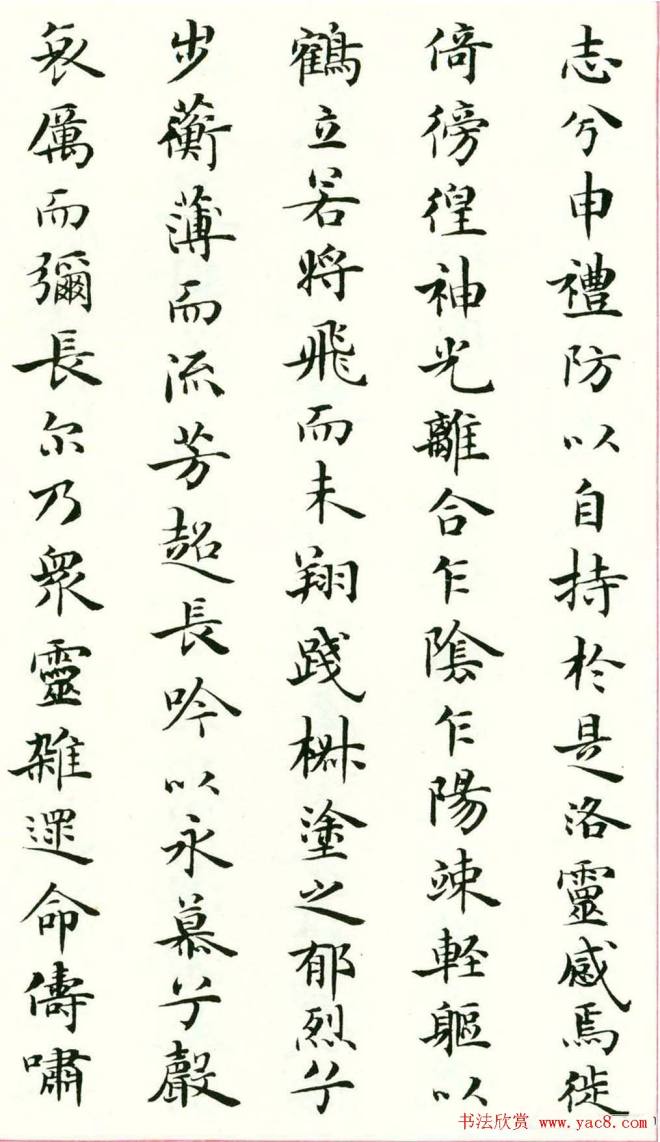 志兮申禮防以自持於是洛靈感焉徙
倚徬徨神光離合乍陰乍陽竦軽軀以
鶴立若將飛而未翔踐椒塗之郁烈兮
步蘅薄而流芳超長吟以永慕兮聲
哀厲而彌長尔乃衆靈雜遝命儔嘯
书法欣赏 www.yac8.com